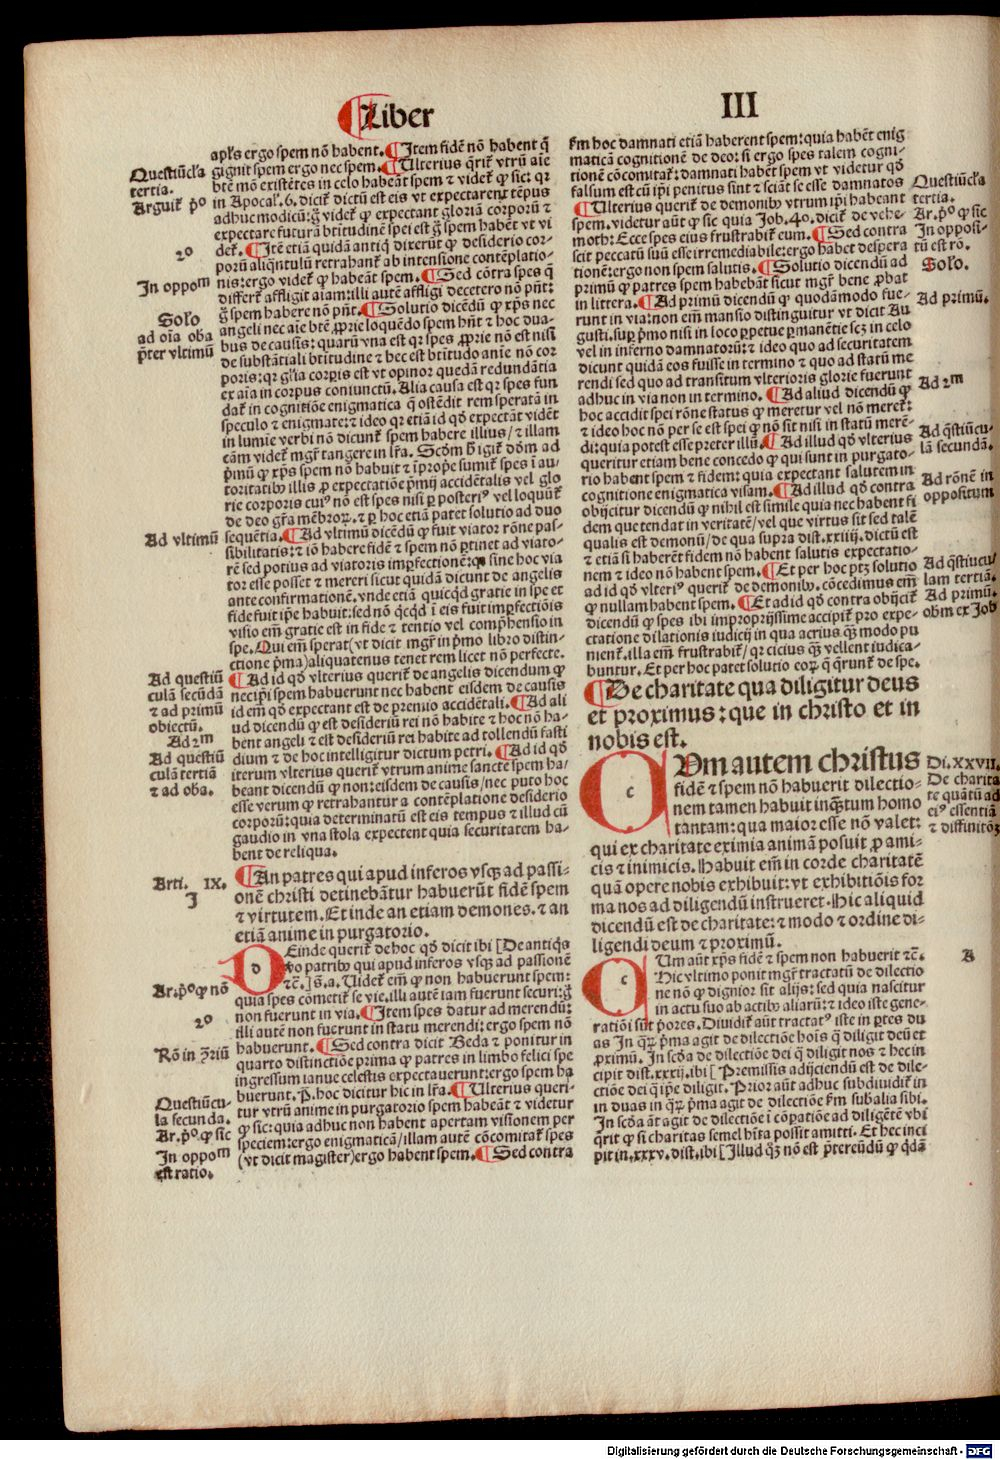 Liber
III
apl̄s ergo spem nō habent. Item fidē nō habent q̄
gignit spem ergo nec spem. Ulterius q̄rit̄ vtrū aīe
btē mō existētes in celo habeāt spem ⁊ videt̄ ꝙ sic: qꝛ
in Apocal̄. 6. dicit̄ dictū est eis vt expectarent tēpus
adhuc modicū: ḡ videt̄ ꝙ expectant gloriā corporū ⁊
expectare futurā btītudinē spei est ḡ spem habēt vt vi
det̄. Itē etiā quidā antiq̄ dixerūt ꝙ desiderio cor-
porū aliq̄ntulū retrahant̄ ab intensione contēplatio-
nis: ergo videt̄ ꝙ habeāt spem. Sed cōtra spes q̄
differt̄ affligit aīam: illi autē affligi decetero nō pn̄t:
ḡ spem habere nō pn̄t. Solutio dicēdū ꝙ xp̄s nec
angeli nec aīe btē ꝓprie loquēdo spem hn̄t ⁊ hoc dua-
bus de causis: quarū vna est qꝛ spes ꝓprie nō est nisi
de substātiali btītudine ⁊ hec est btītudo anīe nō cor
poris: qꝛ gl̄ia corpīs est vt opinor quedā redundātia
ex aīa in corpus coniunctū. Alia causa est qꝛ spes fun
dat̄ in cognitiōe enigmatica q̄ ostēdit rem speratā in
speculo ⁊ enigmate: ⁊ ideo qꝛ etiā id qd̄ expectāt vidēt
in lumīe verbi nō dicunt̄ spem habere illius / ⁊ illam
cām videt̄ mgr̄ tangere in lr̄a. Scdm̄ h̄ igit̄ dōm ad
p̄mū ꝙ xp̄s spem nō habuit ⁊ īprope sumit̄ spes ī au-
toritatibꝰ illis ꝓ expectatiōe p̄mij accidētalis vel glo
rie corporis cuiꝰ nō est spes nisi ꝑ posteriꝰ vel loquūt̄
de deo gr̄a mēbroꝝ. ⁊ ꝑ hoc etiā patet solutio ad duo
sequētia. Ad vltimū dicēdū ꝙ fuit viator rōne pas-
sibilitatis: ⁊ iō habere fidē ⁊ spem nō ꝑtinet ad viato-
rē sed potius ad viatoris imꝑfectionē: qꝛ sine hoc via
tor esse posset ⁊ mereri sicut quidā dicunt de angelis
ante confirmationē. vnde etiā quicqd̄ gratie in spe et
fide fuit ip̄e habuit: sed nō q̄cqd̄ ī eis fuit imꝑfectiōis
visio em̄ gratie est in fide ⁊ tentio vel comp̄hensio in
spe. Qui em̄ sperat (vt dicit mgr̄ in p̄mo libro distin-
ctione p̄ma) aliquatenus tenet rem licet nō perfecte.
Ad id qd̄ vlterius querit̄ de angelis dicendum ꝙ
nec ip̄i spem habuerunt nec habent eisdem de causis
id em̄ qd̄ expectant est de premio accidētali. Ad ali
ud dicendū ꝙ est desideriū rei nō habite ⁊ hoc nō ha-
bent angeli ⁊ est desideriū rei habite ad tollendū fasti
dium ⁊ de hoc intelligitur dictum petri. Ad id qd̄
iterum vlterius querit̄ vtrum anime sancte spem ha-
beant dicendū ꝙ non: eisdem de causis / nec puto hoc
esse verum ꝙ retrahantur a contēplatione desiderio
corporū: quia determinatū est eis tempus ⁊ illud cū
gaudio in vna stola expectent quia securitatem ha-
bent de reliqua.
An patres qui apud inferos vsqꝫ ad passi-
onē christi detinebātur habuerūt fidēm spem
⁊ virtutem. Et inde an etiam demones. ⁊ an
etiā anime in purgatorio.
Deinde querit̄ de hoc qd̄ dicit ibi [De antiq̄s
vo patribꝰ qui apud inferos vsqꝫ ad passionē
⁊c̄. ]s̄. a. Videt̄ em̄ ꝙ non habuerunt spem:
quia spes cōmetit̄ se vie. illi autē iam fuerunt securi: ḡ
non fuerunt in via. Item spes datur ad merendū:
illi autē non fuerunt in statu merendi: ergo spem nō
habuerunt. Sed contra dicit Beda ⁊ ponitur in
quarto distinctiōe prima ꝙ patres in limbo felici spe
ingressum ianue celestis expectauerunt: ergo spem ha
buerunt. P. hoc dicitur hic in lr̄a. Ulterius queri-
tur vtrū anime in purgatorio spem habeāt ⁊ videtur
ꝙ sic: quia adhuc non habent apertam visionem per
speciem: ergo enigmaticā / illam autē cōcomitat̄ spes
(vt dicit magister) ergo habent spem. Sed contra
Questiūcl̄a
tertia.
Arguit̄ pº
2º
In oppom
Solo
ad oīa oba
p̄ter vltimū
Ad vltimū
Ad questiū
culā secūdā
⁊ ad primū
obiectū.
Ad 2m
Ad questiū
culā tertiā
⁊ ad oba.
Arti. IX.
I
Ar. pº ꝙ nō
2º
Rō in ꝯriū
Questiūcu-
la secunda.
Ar. pº. ꝙ sic
In oppom
est ratio.
km̄ hoc damnati etiā haberent spem: quia habēt enig
maticā cognitionē de deo: si ergo spes talem cogni-
tionē cōcomitat̄: damnati habēt spem vt videtur qd̄
falsum est cū ip̄i penitus sint ⁊ sciāt se esse damnatos
Ulterius querit̄ de demonibꝰ vtrum ip̄i habeant
spem. videtur aūt ꝙ sic quia Job. 40. dicit̄ de vehe-
moth: Ecce spes eius frustrabit̄ eum. Sed contra
scit peccatū suū esse irremediabile: ergo habet despera
tionē: ergo non spem salutis. Solutio dicendū ad
primū ꝙ patres spem habebāt sicut mgr̄ bene ꝓbat
in littera. Ad primū dicendū ꝙ quodāmodo fue-
runt in via: non em̄ mansio distinguitur vt dicit Au
gusti. suꝑ p̄mo nisi in loco ꝑpetue ꝑmanētie scꝫ in celo
vel in inferno damnatorū: ⁊ ideo quo ad securitatem
dicunt quidā eos fuisse in termino ⁊ quo ad statū me
rendi sed quo ad transitum vlterioris glorie fuerunt
adhuc in via non in termino. Ad aliud dicendū ꝙ
hoc accidit spei rōne status ꝙ meretur vel nō meret̄:
⁊ ideo hoc nō per se est spei ꝙ nō sit nisi in statū merē-
di: quia potest esse preter illū. Ad illud qd̄ vlterius
queritur etiam bene concedo ꝙ qui sunt in purgato-
rio habent spem ⁊ fidem: quia expectant salutem in
cognitione enigmatica visam. Ad illud qd̄ contra
obijcitur dicendū ꝙ nihil est simile quia nec habent fi
dem que tendat in veritatē / vel que virtus sit sed talē
qualis est demonū / de qua supra dist. xxiij. dictū est
⁊ etiā si haberēt fidem nō habent salutis expectatio-
nem ⁊ ideo nō habent spem. Et per hoc ptꝫ solutio
ad id qd̄ vlteriꝰ querit̄ de demonibꝰ. cōcedimus em̄
ꝙ nullam habent spem. Et ad id qd̄ contra obijcit̄
dicendū ꝙ spes ibi improprijssime accipit̄ pro expe-
ctatione dilationis iudicij in qua acrius qꝫ modo pu
nient̄. illa em̄ frustrabit̄ / qꝛ cicius qꝫ vellent iudica-
buntur. Et per hoc patet solutio eoꝝ q̄ q̄runt̄ de spe.
De charitate qua diligitur deus
et proximus: que in christo et in
nobis est.
CUm autem christus
fidē ⁊ spem nō habuerit dilectio-
nem tamen habuit inqꝫtum homo
tantam: qua maior esse nō valet:
qui ex charitate eximia animā posuit ꝓ ami-
cis ⁊ inimicis. Habuit em̄ in corde charitatē
quā opere nobis exhibuit: vt exhibitiōis for
ma nos ad diligendū instrueret. Hic aliquid
dicendū est de charitate: ⁊ modo ⁊ ordine di-
ligendi deum ⁊ proximū.
CUm aūt xp̄s fidē ⁊ spem non habuerit ⁊c̄.
Hic vltimo ponit mgr̄ tractatū de dilectio
ne nō ꝙ dignior sit alijs: sed quia nascitur
in actu suo ab actibꝰ aliarū: ⁊ ideo iste gene-
ratiōi sūt p̄ores. Diuidit̄ aūt tractatꝰ iste in ꝑtes du
as In qꝝ p̄ma agit de dilectiōe hoīs q̄ diligit deū et
ꝓximū. In scd̄a de dilectiōe dei q̄ diligit nos ⁊ hec in
cipit dist. xxxij. ibi [ Premissis adijciendū est de dile-
ctiōe dei q̄ ip̄e diligit. Prior aūt adhuc subdiuidit̄ in
in duas in qꝝ p̄ma agit de dilectiōe km̄ subalia sibi.
In scd̄a āt agit de dilectiōe ī cōꝑatiōe ad diligētē vbi
q̄rit ꝙ si charitas semel hīta possit amitti. Et hec inci
pit in. xxxv. dist. ibi [Illud qꝫ nō est p̄tereūdū ꝙ qd̄ā
Questiūcl̄a
tertia.
Ar. pº ꝙ sic
In opposi-
tū est rō.
Solo.
Ad primū.
Ad 2m
Ad q̄stiūcu-
lā secundā.
Ad rōnē in
oppositum
Ad q̄stiūcu/
lam tertiā.
Ad primū.
obm ex Job
Di. XXVII.
De charita
te quātū ad
eiꝰ essentiā
⁊ diffinitōꝫ
A
Digitalisierung gefördert durch die Deutsche Forschungsgemeinschaft - DFG